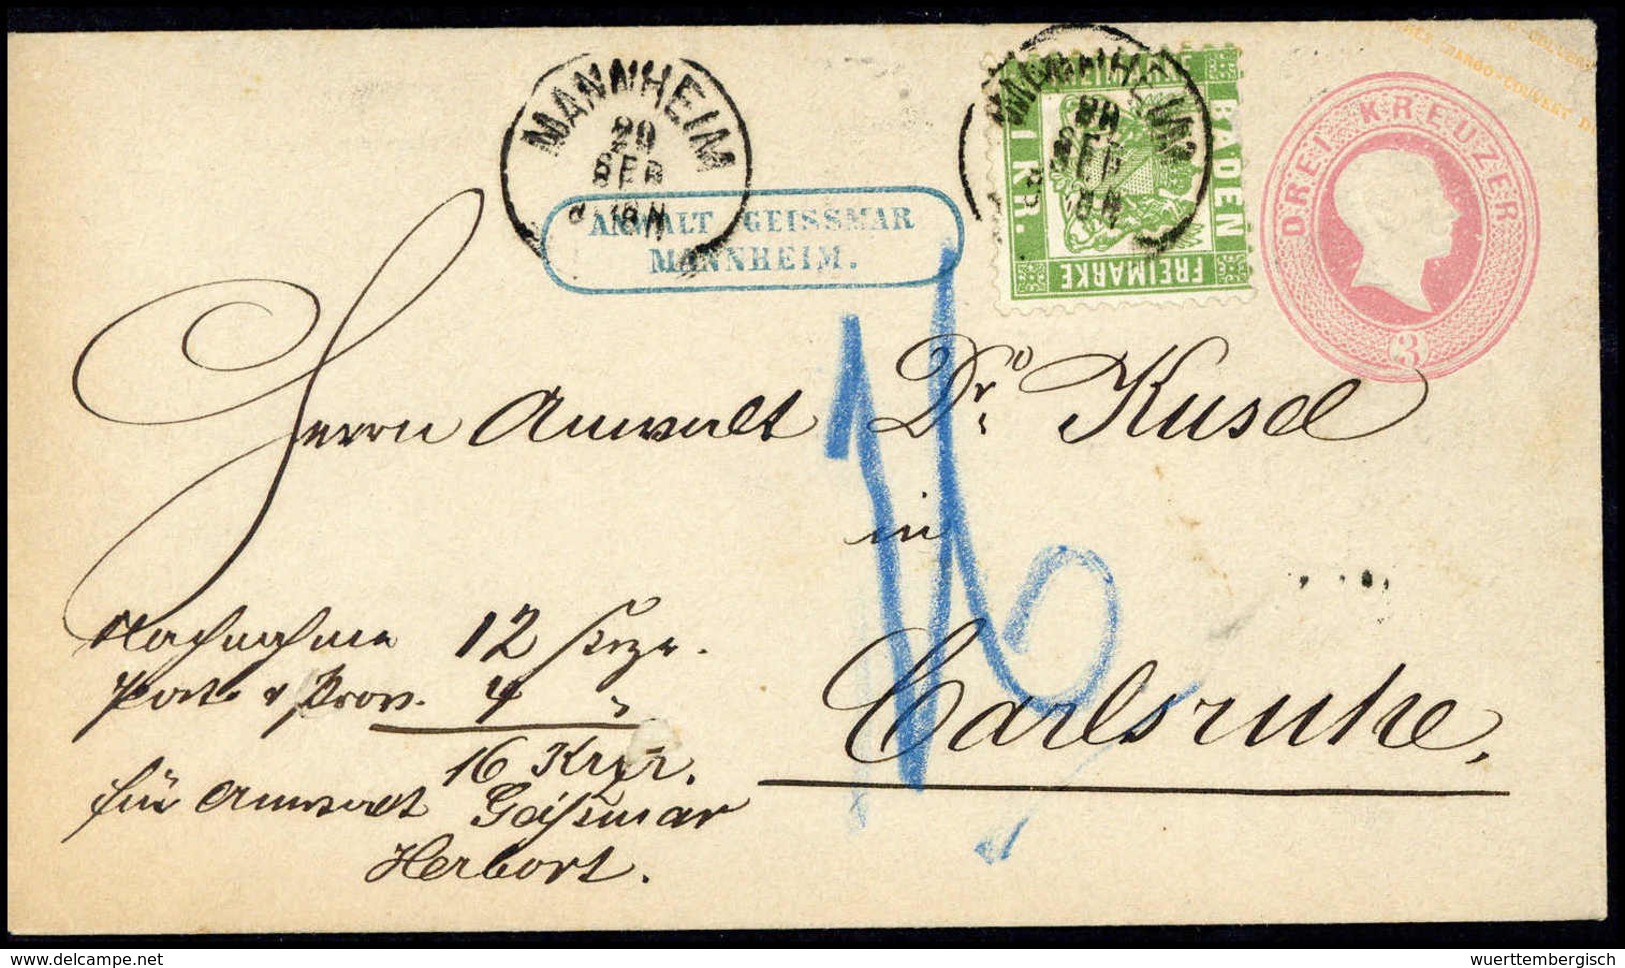 MANNHEIM
29
SEP
MANNHEIM
29
SEP
ANWALT GEISSMAR
MANNHEIM.
BADEN
1 KR.
FREIMARKE
DREI KREUZER
3
Herrn Anwalt Dr. Kusel
in
Carlsruhe.
16
Nachnahme 12 Krzr.
Porto & Prov. 4 "
16 Krzr.
für Anwalt Geißmar
Herbort.
delcampe.net
wuerttembergisch